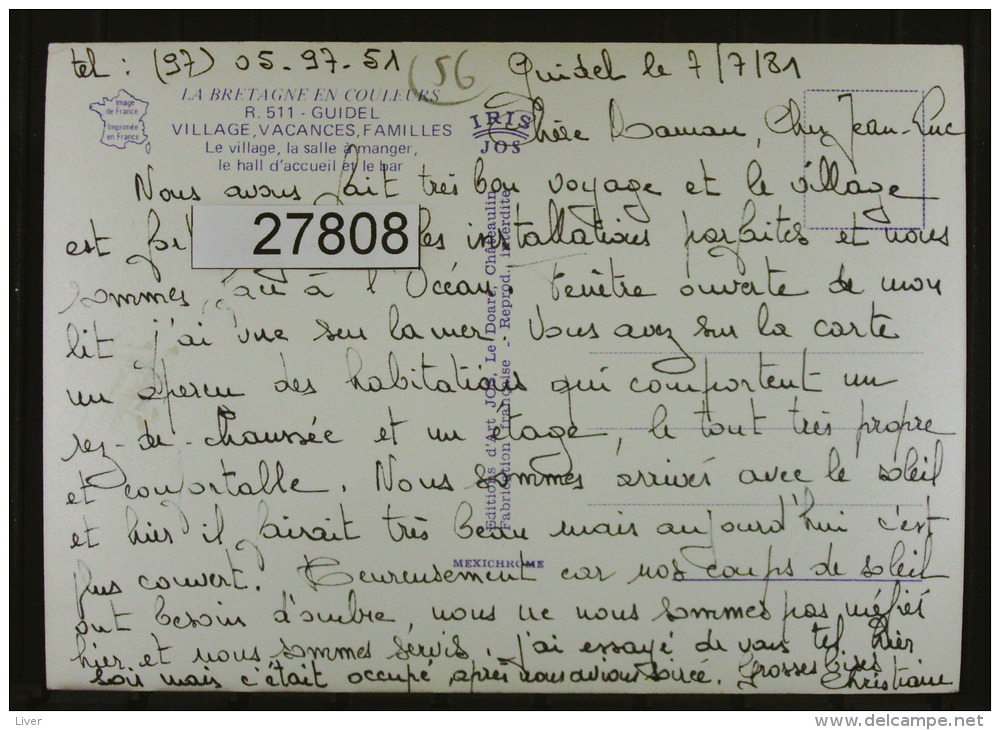 tel : (97) 05-97-51
56
Guidel le 7/7/81
Image de France
Imprimée en France
LA BRETAGNE EN COULEURS
R. 511 - GUIDEL
VILLAGE, VACANCES, FAMILLES
Le village, la salle à manger,
le hall d'accueil et le bar
IRIS
JOS
Chère Maman, Cher Jean-Luc
Nous avons fait très bon voyage et le village
est 27808 les installations parfaites et nous
sommes face à l'Océan. Fenêtre ouverte de mon
lit j'ai vue sur la mer. Vous avez sur la carte
un aperçu des habitations qui comportent un
rez-de-chaussée et un étage, le tout très propre
et confortable. Nous sommes arrivés avec le soleil
et hier il faisait très beau mais aujourd'hui c'est
plus couvert. Heureusement car nos coups de soleil
ont besoin d'ombre, nous ne nous sommes pas méfiés
hier et nous sommes servis. J'ai essayé de vous tel. hier
soir mais c'était occupé, après nous avions soirée. Grosses bises
Christiane
Editions d'Art JOS, Le Doaré, Châteaulin
Fabrication française - Reprod. interdite
MEXICHROME
Liver
delcampe.net